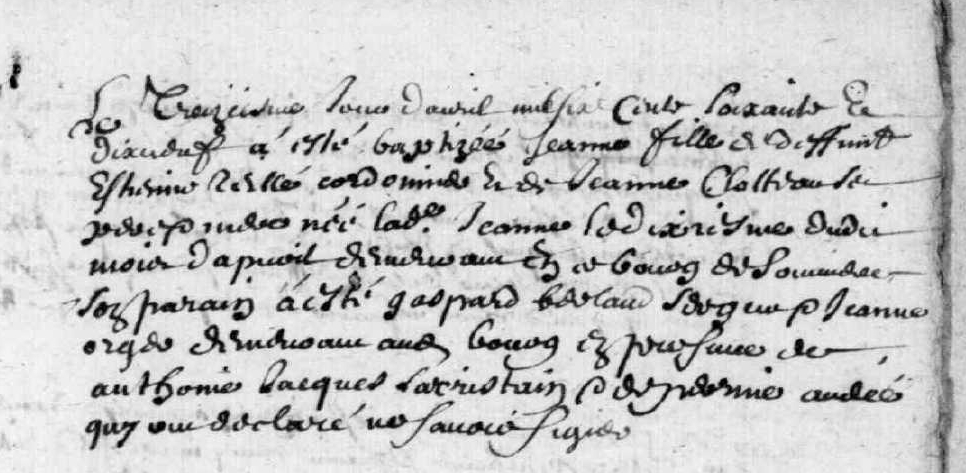 Le Treziesme Jour davril mil six Cents soixante et
dixneuf à esté baptizéé Jeanne fille de deffunt
Estienne cordonnier et de Jeanne ses
pere & mere néé lad.e Jeanne le dixiesme dudit
mois dapvril demeurant en ce bourg de
son parain à esté gaspard & Jeanne
demeurant aud bourg en presence de
anthonie Jacques sacristain & de andré
quy ont declaré ne savoir signer